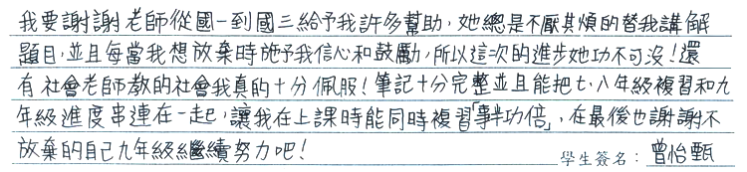 我要謝謝老師從國一到國三給予我許多幫助，她總是不厭其煩的替我講解
題目，並且每當我想放棄時施予我信心和鼓勵，所以這次的進步她功不可沒！還
有社會老師教的社會我真的十分佩服！筆記十分完整並且能把七、八年級複習和九
年級進度串連在一起，讓我在上課時能同時複習「事半功倍」，在最後也謝謝不
放棄的自己九年級繼續努力吧！
學生簽名：曾怡甄